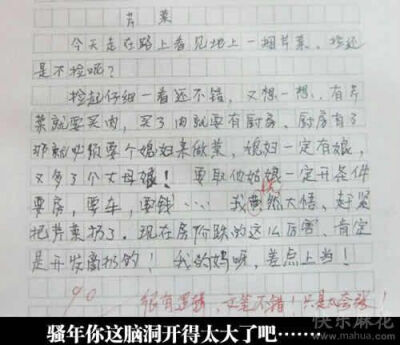 芹菜
今天走在路上看见地上一捆芹菜、捡还
是不捡呢?
捡起仔细一看还不错，又想一想，有芹
菜就要买肉，买了肉就要有厨房、厨房有了
那就必须要个媳妇来做菜，媳妇一定有娘，
又多了个丈母娘！要取他姑娘一定开条件
要房，要车，要钱……我恍然大悟、赶紧
把芹菜扔了．现在房价跌的这么厉害、肯定
是开发商扔的！我的妈呀，差点上当！
90 很有逻辑，文笔不错！只是
骚年你这脑洞开得太大了吧……
快乐麻花
www.mahua.com